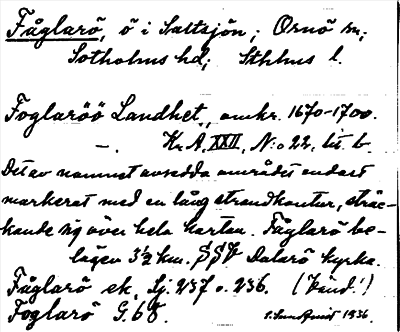 Fåglarö, ö i Saltsjön; Ornö sn;
Sotholms hd; Sthlms l.
Foglaröö Landhet, omkr. 1670-1700.
—. Kr. A. XXII, N:o 22, lit. b.
Det av namnet avsedda området endast
markerat med en lång strandkontur, sträc-
kande sig över hela kartan. Fåglarö be-
lägen 3½ km. SSV Dalarö kyrka.
Fåglarö ek. Lj. 237 o. 236. (Händ.!)
Foglarö G. 68.
1936.